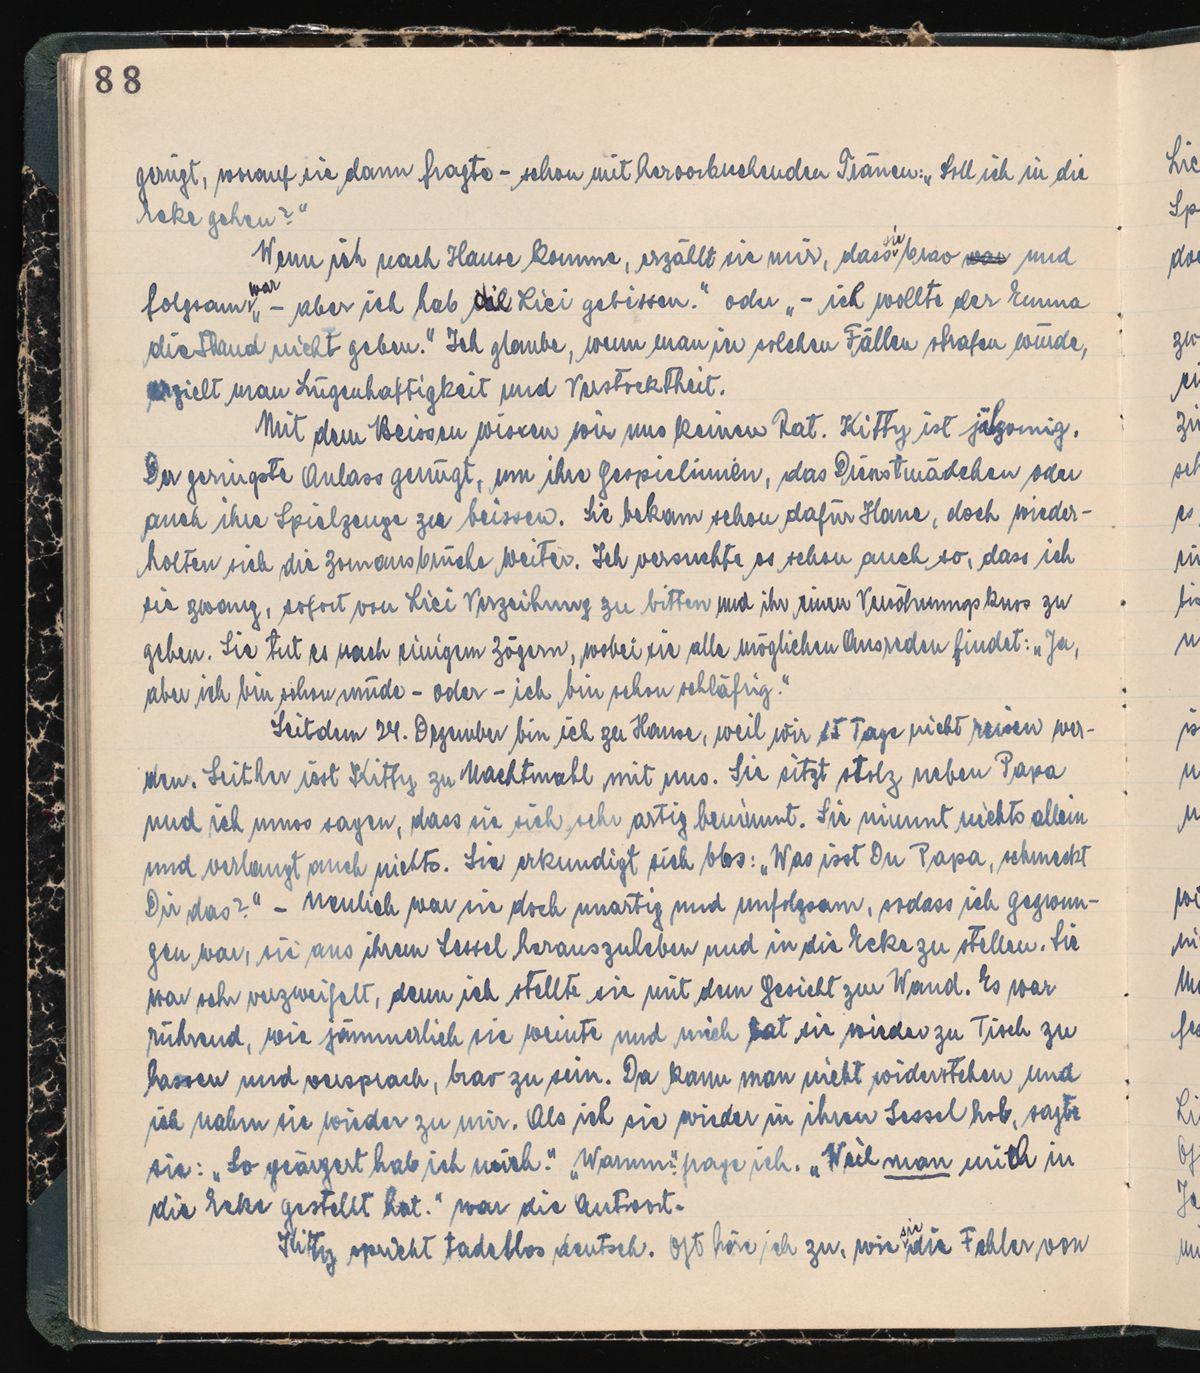 88
gerügt, worauf sie dann fragte – schon mit hervorbrechenden Tränen: „Soll ich in die
Ecke gehen?"
Wenn ich nach Hause komme, erzählt sie mir, dass sie brav ~~war~~ und
folgsam war „– aber ich hab die Lici gebissen." oder „– ich wollte der Emma
die Hand nicht geben." Ich glaube, wenn man in solchen Fällen strafen würde,
erzielt man Lügenhaftigkeit und Verstocktheit.
Mit dem Beissen wissen wir uns keinen Rat. Kitty ist jähzornig.
Der geringste Anlass genügt, um ihre Gespielinnen, das Dienstmädchen oder
auch ihre Spielzeuge zu beissen. Sie bekam schon dafür Haue, doch wieder-
holten sich die Zornausbrüche weiter. Ich versuchte es schon auch so, dass ich
sie zwang, sofort von Lici Verzeihung zu bitten und ihr einen Versöhnungskuss zu
geben. Sie tut es nach einigem Zögern, wobei sie alle möglichen Ausreden findet: „Ja,
aber ich bin schon müde – oder – ich bin schon schläfrig."
Seit dem 24. Dezember bin ich zu Hause, weil wir 15 Tage nicht reisen wer-
den. Seither isst Kitty zu Nachtmahl mit uns. Sie sitzt stolz neben Papa
und ich muss sagen, dass sie sich sehr artig benimmt. Sie nimmt nichts allein
und verlangt auch nichts. Sie erkundigt sich blos: „Was isst Du Papa, schmeckt
Dir das?" – Neulich war sie doch unartig und unfolgsam, sodass ich gezwun-
gen war, sie aus ihrem Sessel herauszuheben und in die Ecke zu stellen. Sie
war sehr verzweifelt, denn ich stellte sie mit dem Gesicht zur Wand. Es war
rührend, wie jämmerlich sie weinte und mich bat sie wieder zu Tisch zu
lassen und versprach, brav zu sein. Da kann man nicht widerstehen und
ich nahm sie wieder zu mir. Als ich sie wieder in ihren Sessel hob, sagte
sie: „So geärgert hab ich mich." „Warum" frage ich. „Weil man mich in
die Ecke gestellt hat." war die Antwort.
Kitty spricht tadellos deutsch. Oft höre ich zu, wie sie die Fehler von